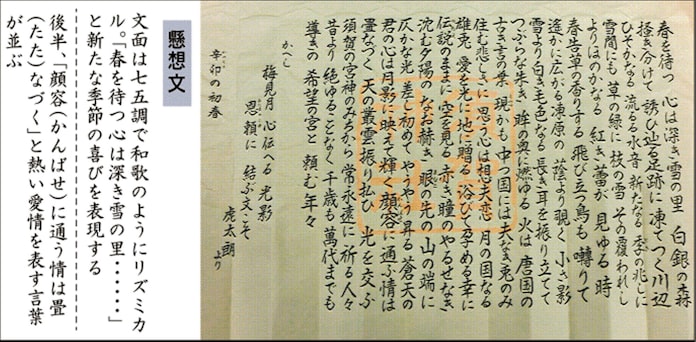 春を待つ 心は深き雪の里 白銀の森
掻き分けて 誘ひ辿る足跡に 凍てつく川辺
ひそかなる 流るる水音 新たなる 季の兆しに
雪間にも 草の緑に 枝の雪 その覆われし
よりほのかなる 紅き蕾が 見ゆる 時
春告草の香りする 飛び立つ鳥も 囀りて
遥かに広がる凍原の 蔭より覗く 小さ影
雪より白き毛色なる 長き耳を振り立てて
つぶらな朱き 眸の奥に燃ゆる 火は 唐国の
古き言の葉 現かも 中つ国には 夫なき兎のみ
住む悲しさに 思う心は想夫恋 月の国なる
雄兎 愛を光に地に贈る 浴びて孕める幸に
伝説のままに 空を見る 赤き瞳の やるせなき
沈む夕陽の なお赫き 眼の先の 山の端に
仄かな光 差し初めて 昇る 蒼天の
君の心は月影に 映えて輝く 顔容に 通ふ情は
畳なづく 天の叢雲 振り払ひ 光を交ぶ
須賀の宮神のみちから 常永遠に 祈る人々
昔より 絶ゆることなく 千歳も 萬代までも
導きの 希望の宮と 頼む年々
かへし
梅見月 心伝へる 光影
思頼に 結ぶ文こそ
虎太朗 より
辛卯の初春
懸想文
文面は七五調で和歌のようにリズミカ
ル。「春を待つ 心は深き雪の里・・・・・・」
と新たな季節の喜びを表現する
後半、「顔容(かんばせ)に通う情は畳
(たた)なづく」と熱い愛情を表す言葉
が並ぶ